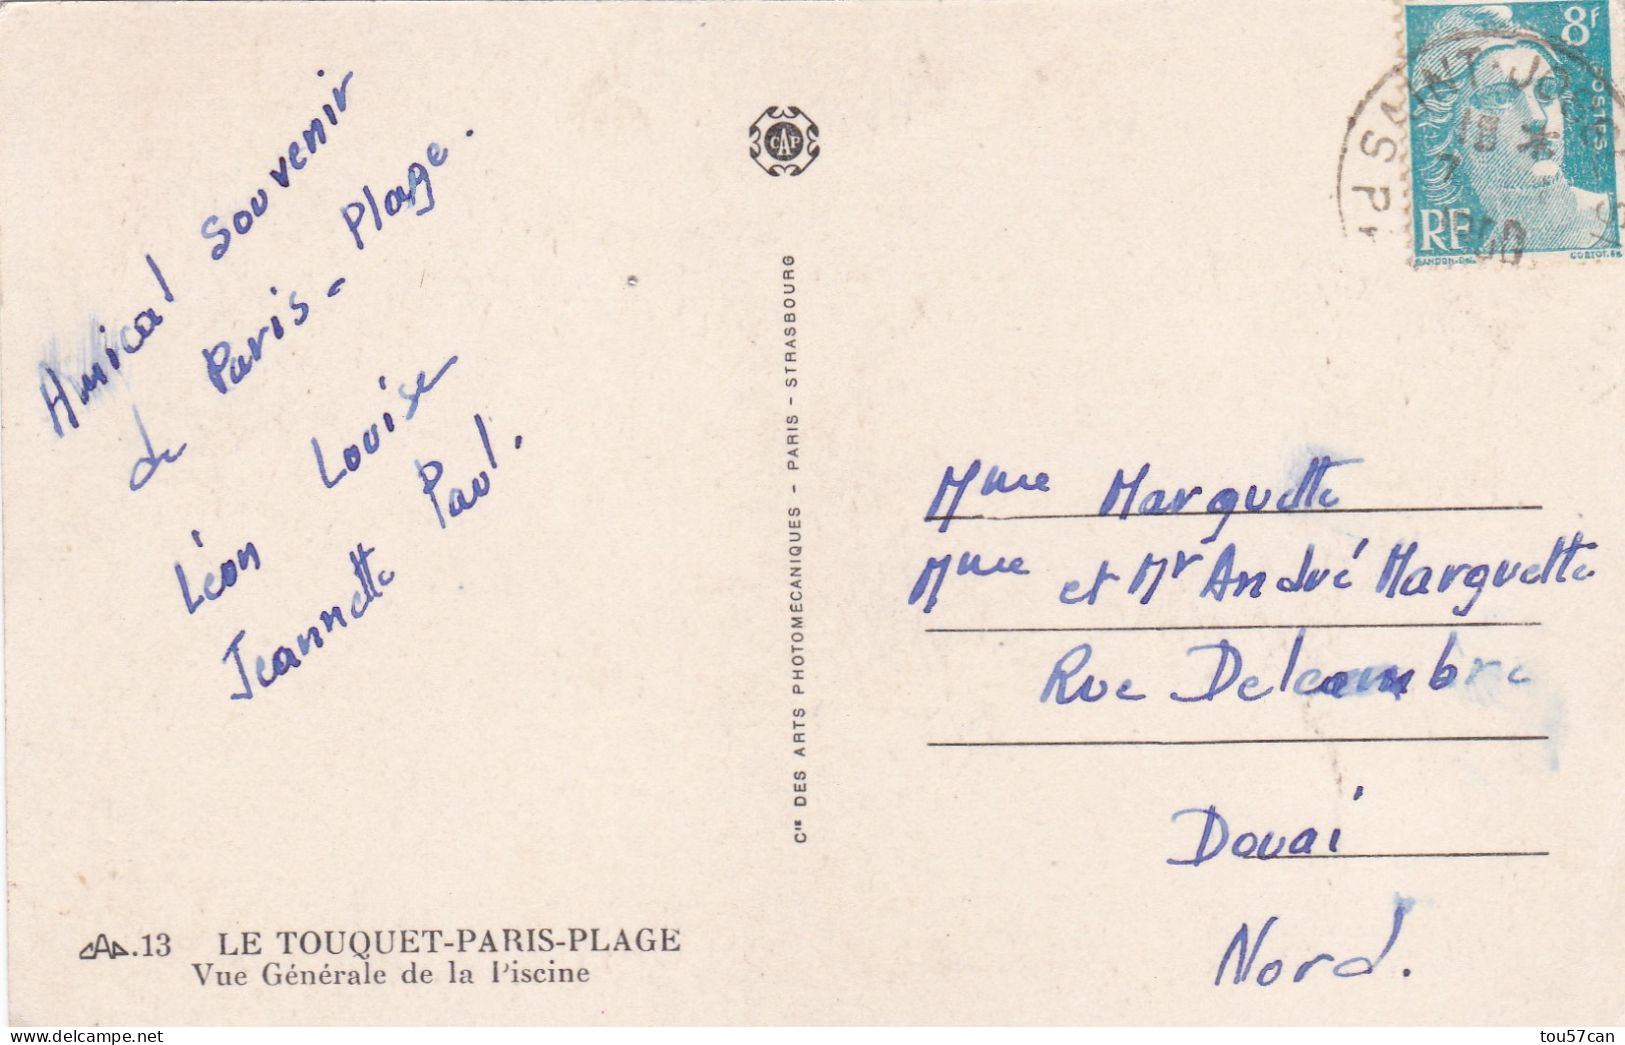 Amical souvenir
de Paris-Plage.
Léon Louise
Jeannette Paul.
CAP
Cie DES ARTS PHOTOMECANIQUES - PARIS - STRASBOURG
8F
POSTES
RF
GANDON-DEL.
CORTOT.SC
SAINT-JOSSE
P
18 *
7
Mme Marguette
Mme et Mr André Marguette
Rue Delcambre
Douai
Nord.
CAP.13 LE TOUQUET-PARIS-PLAGE
Vue Générale de la Piscine
tou57can